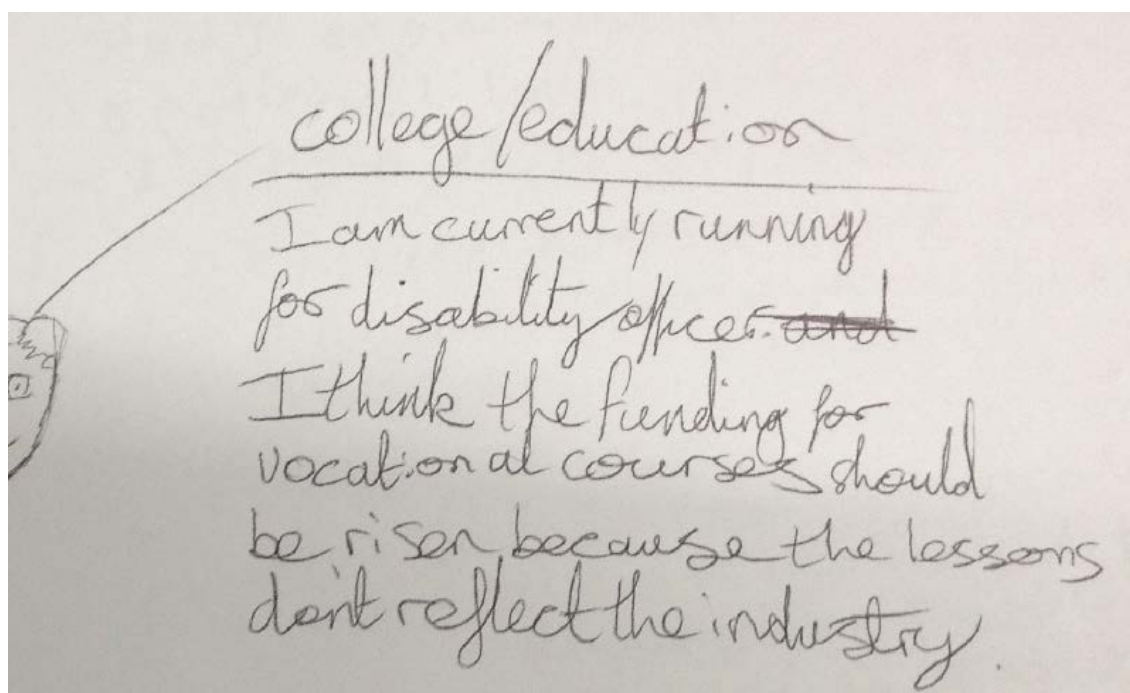 college/education
I am currently running
for disability officer. and
I think the funding for
vocational courses should
be risen because the lessons
don't reflect the industry.